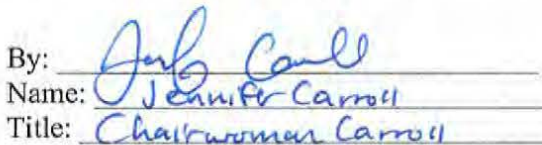 By:
Name: Jennifer Carroll
Title: Chairwoman Carroll